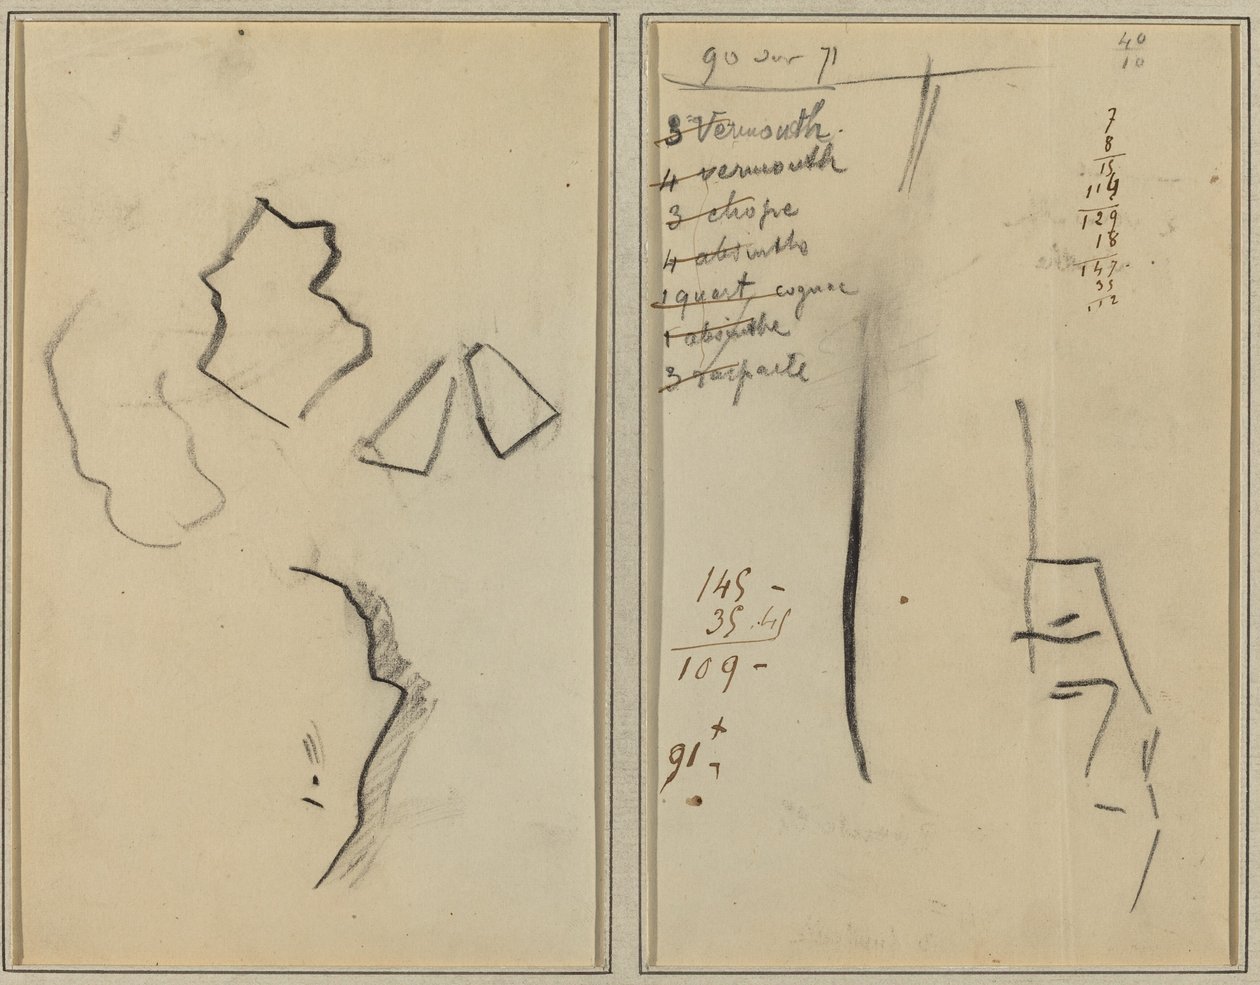 90 sur 71
40
10
3 Vermouth.
4 vermouth
3 chope
4 absinthe
1 quart cognac
1 absinthe
3
7
8
15
114
129
18
147
35
112
145 -
35.45
109 -
91